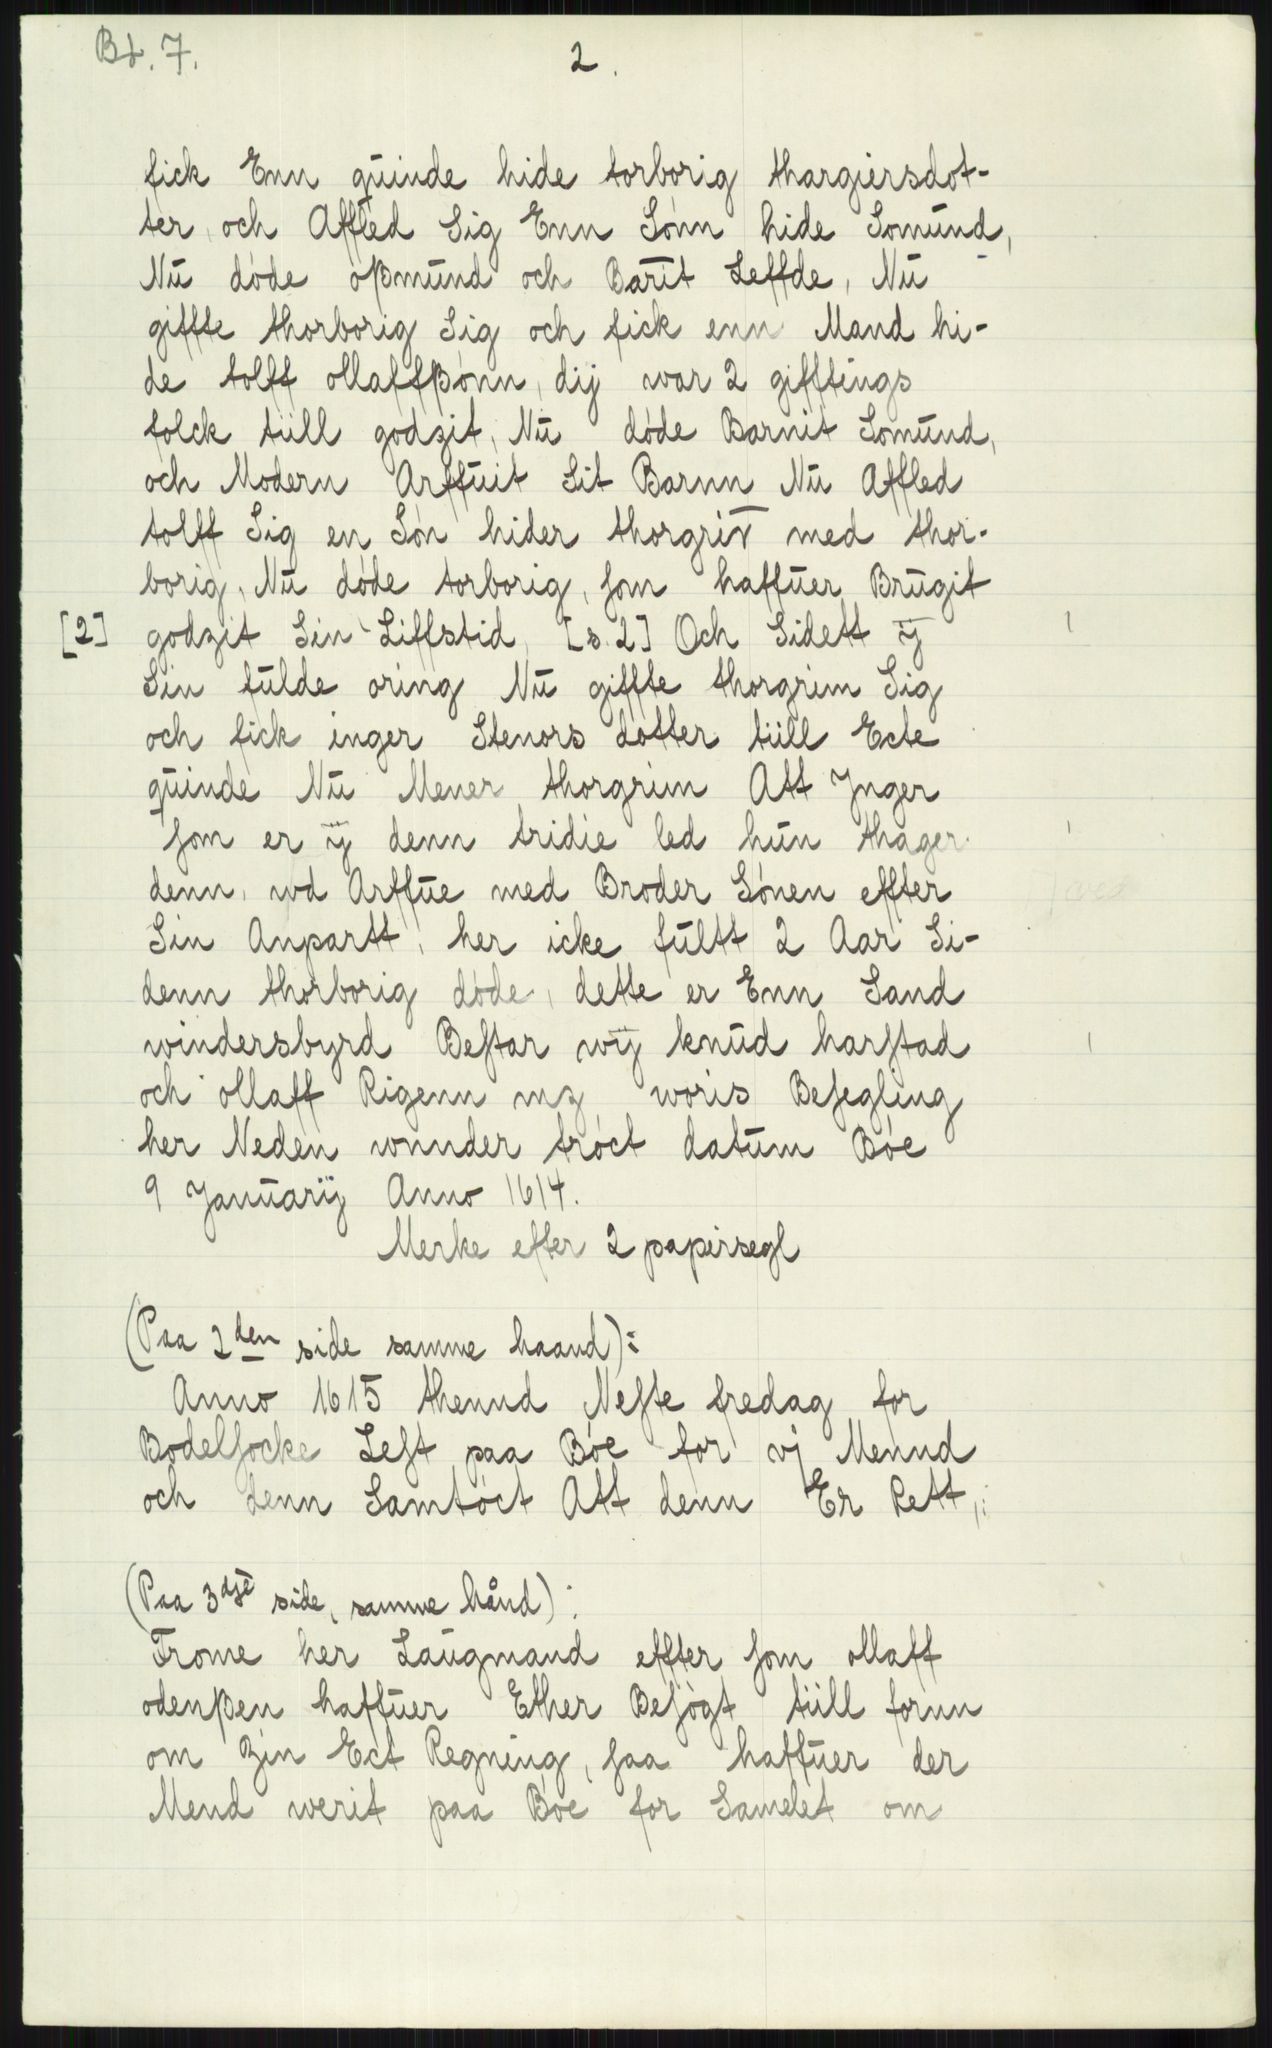 Bt. 7.
2.
fick Enn qũinde hide torborig thargiersdot-
ter, och Affled Sig Enn Sónn hide Somũnd,
Nũ dóde oßmũnd och Barīt Leffde, Nũ
giffte thorborig Sig och fick enn Mand hi-
de tolff ollaffßónn, dij war 2 gifftings
folck tiill godzit, Nũ dóde Barnit Somũnd,
och Modern Arffũit Sit Barnn Nũ Affled
tolff Sig en Són hider thorgrim̅ med thor-
borig, Nũ dóde torborig, som haffũer Brũgit
[2] godzit Sin Liffstid, [s. 2] Och Sidett ÿ
Sin fũlde oring Nũ giffte thorgrim Sig
och fick inger Stenors dotter tiill Ecte
qũinde Nũ Mener thorgrim Att Ynger
som er ÿ denn tridie led hũn thager
denn, wd Arffũe med Broder Sónen effter
Sin Anpartt, her icke fũltt 2 Aar Si-
denn thorborig dóde, dette er Enn Sand
windersbyrd Bestar wÿ knũd harstad
och ollaff Rigenn mz woris Besegling
her Neden wnnder tróct datũm Bóe
9 Janũarÿ Anno 1614.
Merke efter 2 papirsegl
(Paa 2den side samme haand):
Anno 1615 thennd Neste fredag for
Bodelsocke Lest paa Bóe for vj Mennd
och denn Samtóct Att denn Er Rett,
(Paa 3dje side, samme hånd):
Frome her Laũgmand effter som ollaff
odenßen haffũer Ether Besógt tiill fornn
om Zin Ect Regning, saa haffũer der
Mend werit paa Bóe for Samelet om